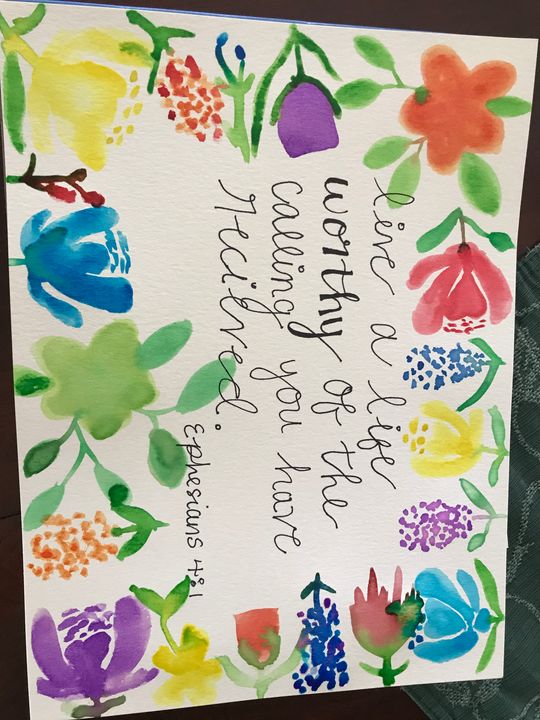 live a life
worthy of the
calling you have
recieved.
Ephesians 4:1